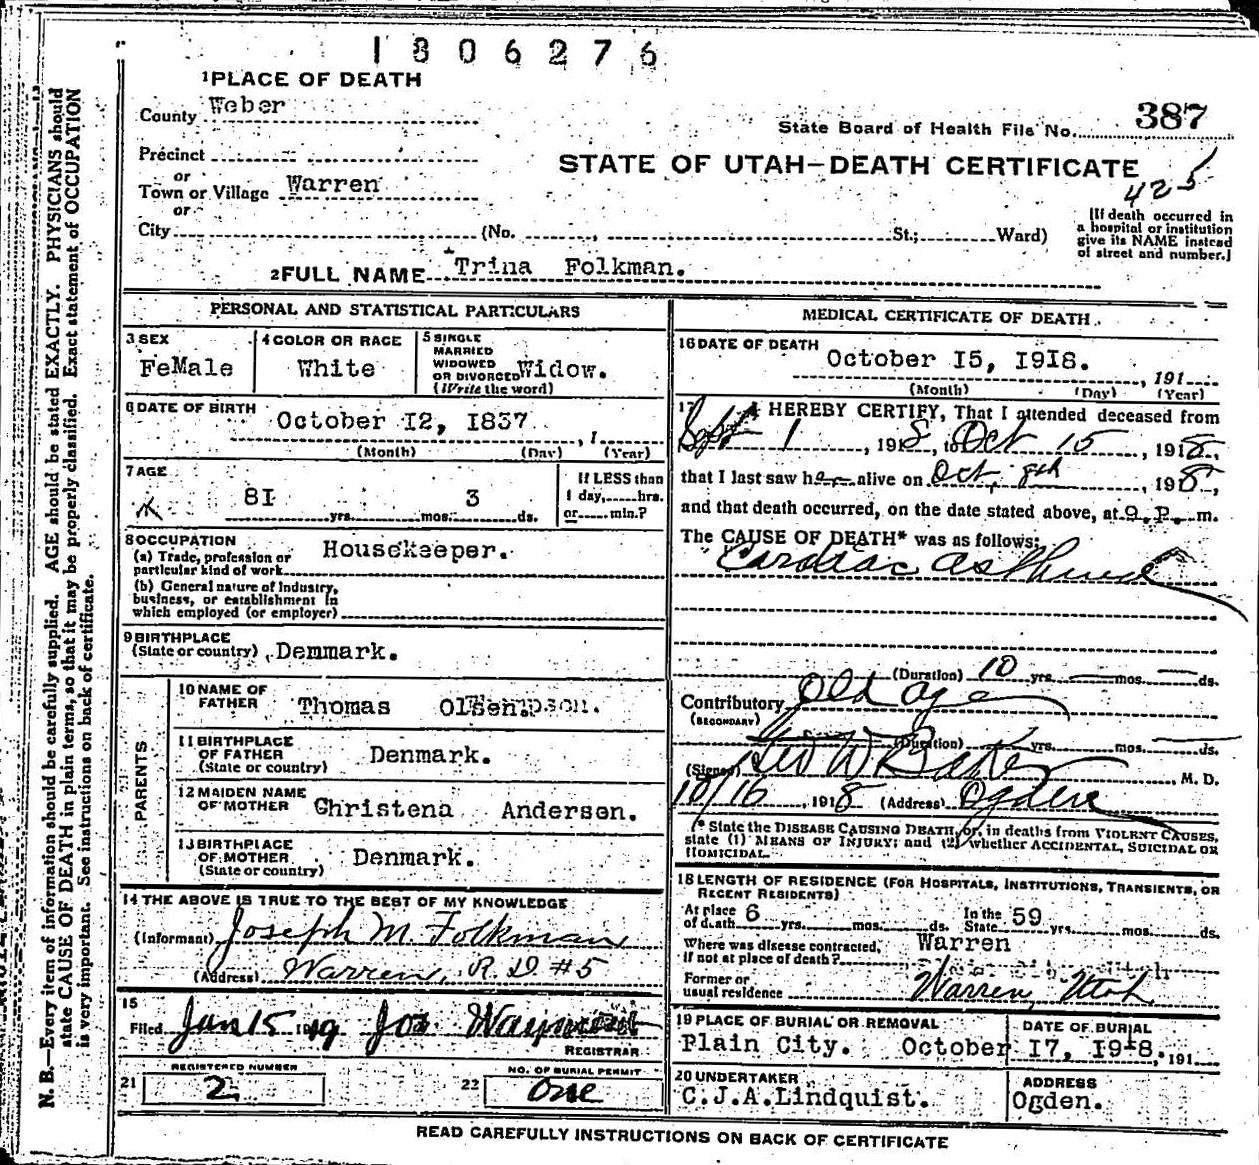 1806276
1 PLACE OF DEATH
County Weber
State Board of Health File No. 387
Precinct
or
Town or Village Warren
STATE OF UTAH—DEATH CERTIFICATE
425
or
City (No. , St.; Ward)
[If death occurred in
a hospital or institution
give its NAME instead
of street and number.]
2 FULL NAME Trina Folkman.
PERSONAL AND STATISTICAL PARTICULARS
3 SEX
FeMale
4 COLOR OR RACE
White
5 SINGLE
MARRIED
WIDOWED
OR DIVORCED Widow.
(Write the word)
6 DATE OF BIRTH
October I2, I837 , 1
(Month) (Day) (Year)
7 AGE
8I yrs. mos. 3 ds.
If LESS than
1 day, hrs.
or min.?
8 OCCUPATION
(a) Trade, profession or
particular kind of work Housekeeper.
(b) General nature of Industry,
business, or establishment in
which employed (or employer)
9 BIRTHPLACE
(State or country) Demmark.
PARENTS
10 NAME OF
FATHER Thomas
11 BIRTHPLACE
OF FATHER
(State or country) Denmark.
12 MAIDEN NAME
OF MOTHER Christena Andersen.
13 BIRTHPLACE
OF MOTHER
(State or country) Denmark.
14 THE ABOVE IS TRUE TO THE BEST OF MY KNOWLEDGE
(Informant) Joseph M. Folkman
(Address) Warren, R. D. #5
15
Filed Jan 15 1919 Jos Wayment
REGISTRAR
21 REGISTERED NUMBER
2
22 NO. OF BURIAL PERMIT
One
MEDICAL CERTIFICATE OF DEATH
16 DATE OF DEATH
October I5, I9I8. , 191
(Month) (Day) (Year)
17 I HEREBY CERTIFY, That I attended deceased from
Sept 1 , 1918, to Oct 15 , 1918,
that I last saw her alive on Oct, 8th , 1918,
and that death occurred, on the date stated above, at 9 P. m.
The CAUSE OF DEATH* was as follows:
Cardiac asthma
(Duration) 10 yrs. mos. ds.
Contributory Old age
(SECONDARY)
(Duration) yrs. mos. ds.
(Signed) Geo W Baker M. D.
10/16 , 1918 (Address) Ogden
[* State the DISEASE CAUSING DEATH, or, in deaths from VIOLENT CAUSES,
state (1) MEANS OF INJURY; and (2) whether ACCIDENTAL, SUICIDAL OR
HOMICIDAL.
18 LENGTH OF RESIDENCE (FOR HOSPITALS, INSTITUTIONS, TRANSIENTS, OR
RECENT RESIDENTS)
At place 6
of death yrs. mos. ds.
In the 59
State yrs. mos. ds.
Where was disease contracted, Warren
If not at place of death?
Former or
usual residence Warren, Utah
19 PLACE OF BURIAL OR REMOVAL
Plain City.
DATE OF BURIAL
October I7, I9I8, 191
20 UNDERTAKER
C.J.A.Lindquist.
ADDRESS
Ogden.
READ CAREFULLY INSTRUCTIONS ON BACK OF CERTIFICATE
N. B.—Every item of information should be carefully supplied. AGE should be stated EXACTLY. PHYSICIANS should
state CAUSE OF DEATH in plain terms, so that it may be properly classified. Exact statement of OCCUPATION
is very important. See instructions on back of certificate.